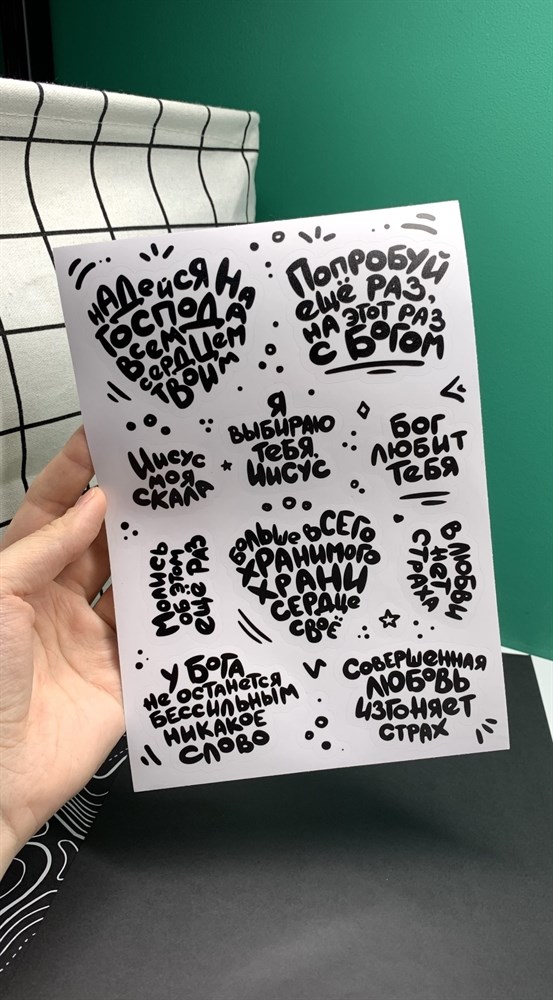 НАДЕЙСЯ НА
ГОСПОДА
ВСЕМ
СЕРДЦЕМ
ТВОИМ
ПОПРОБУЙ
ЕЩЁ РАЗ,
НА ЭТОТ РАЗ
С БОГОМ
Я
ВЫБИРАЮ
ТЕБЯ,
ИИСУС
БОГ
ЛЮБИТ
ТЕБЯ
ИИСУС
МОЯ
СКАЛА
БОЛЬШЕ ВСЕГО
ХРАНИМОГО
ХРАНИ
СЕРДЦЕ
СВОЁ
МОЛИСЬ
ОБ ЭТОМ
ЕЩЁ РАЗ
В ЛЮБВИ
НЕТ
СТРАХА
У БОГА
НЕ ОСТАНЕТСЯ
БЕССИЛЬНЫМ
НИКАКОЕ
СЛОВО
СОВЕРШЕННАЯ
ЛЮБОВЬ
ИЗГОНЯЕТ
СТРАХ